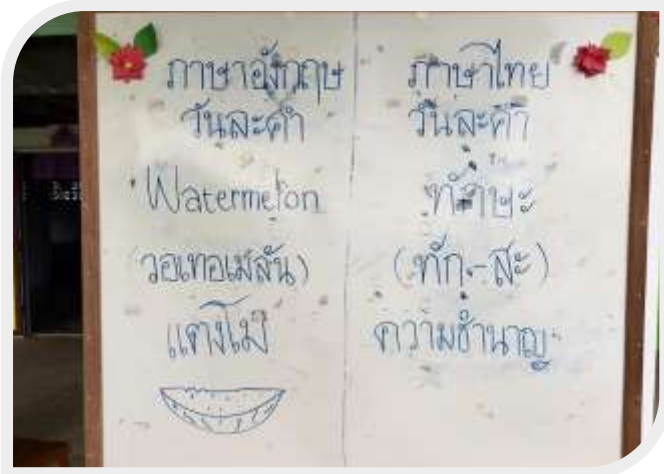 ภาษาอังกฤษ
วันละคำ
Watermelon
(วอเทอเมลัน)
แตงโม
ภาษาไทย
วันละคำ
ทักษะ
(ทัก-สะ)
ความชำนาญ